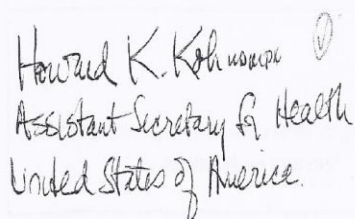 Howard K. Koh
Assistant Secretary for Health
United States of America.